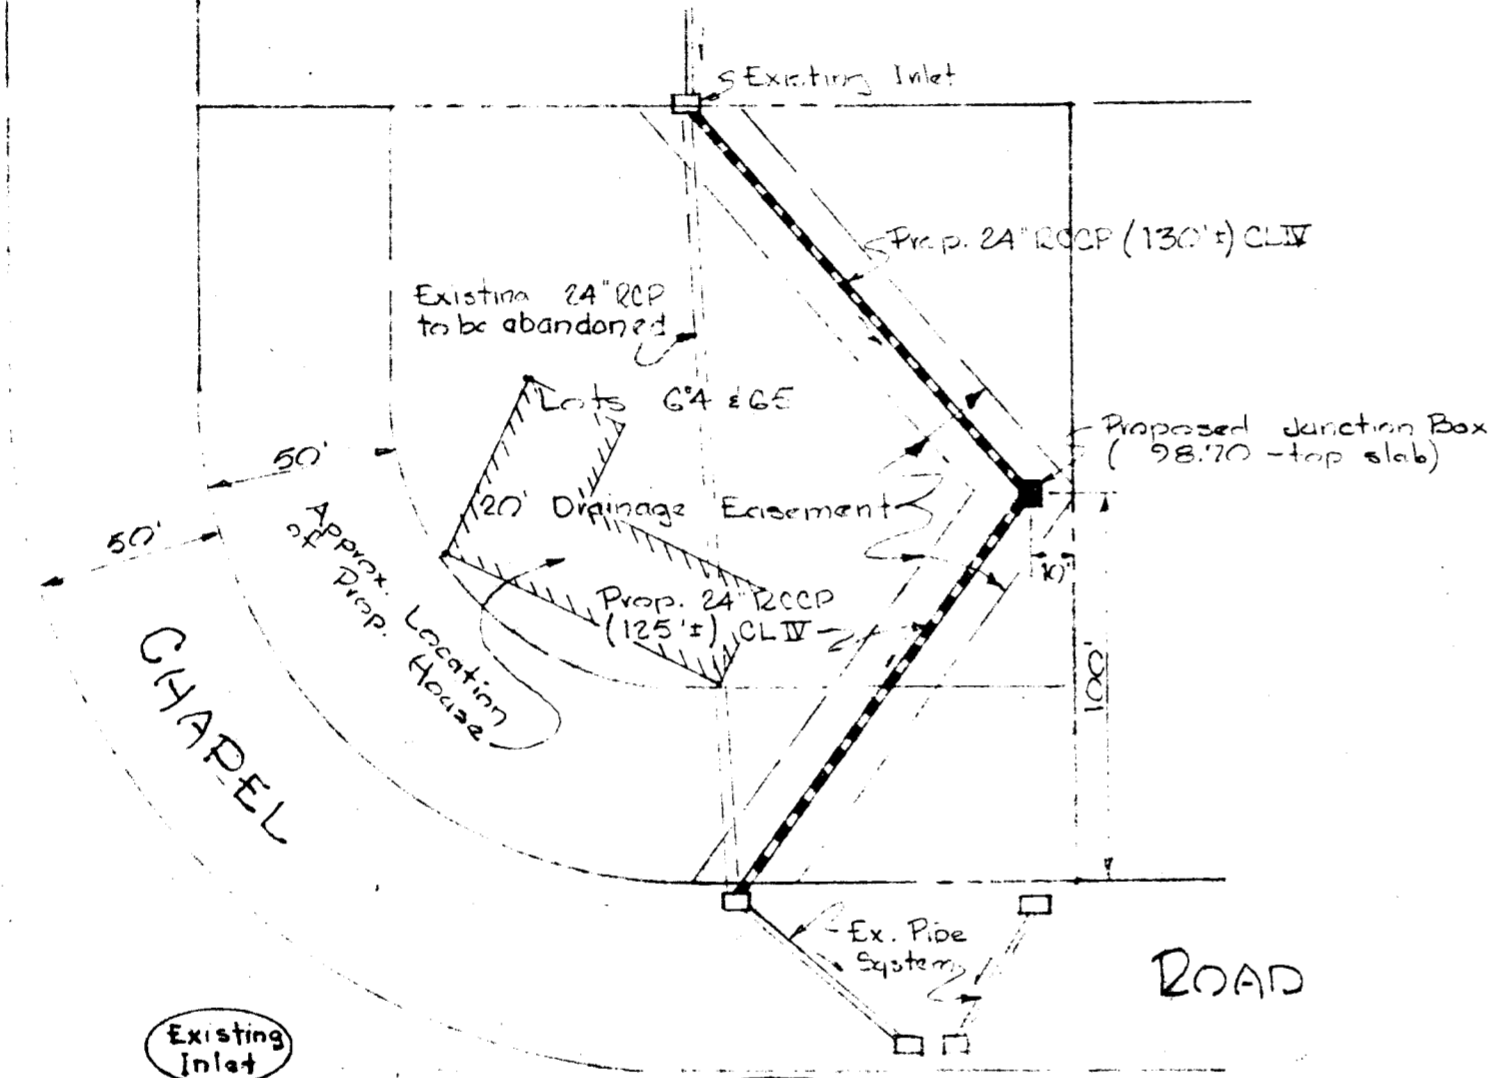 Existing Inlet
Prop. 24" RCCP (130'±) CL IV
Existing 24" RCP
to be abandoned
Lots 64 & 65
Proposed Junction Box
(98.70 - top slab)
50'
20' Drainage Easement
50'
Approx. Location
of Prop. House
10'
Prop. 24" RCCP
(125'±) CL IV
100'
CHAPEL
Ex. Pipe
System
ROAD
Existing
Inlet